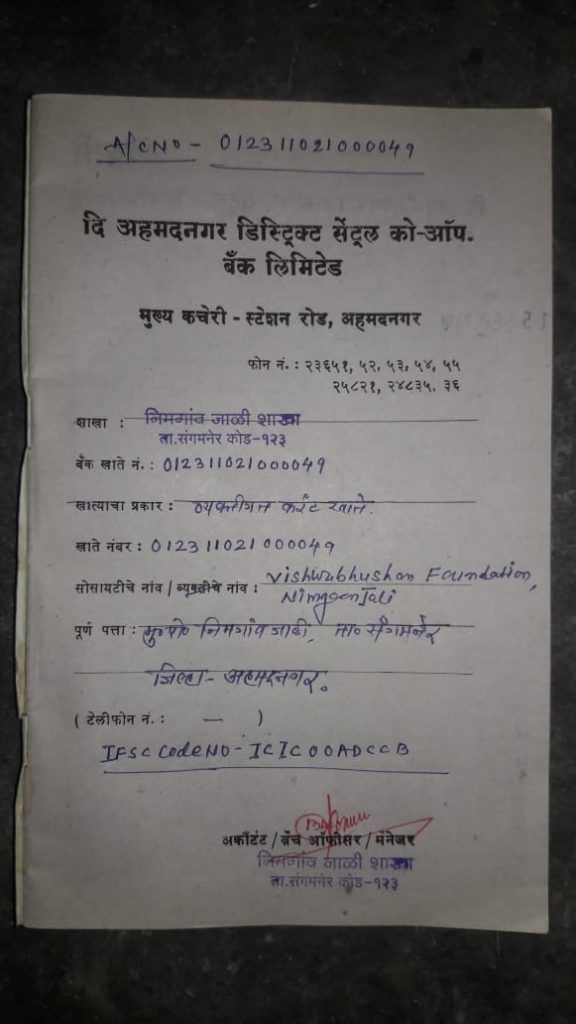 A/c No - 012311021000049
दि अहमदनगर डिस्ट्रिक्ट सेंट्रल को-ऑप.
बँक लिमिटेड
मुख्य कचेरी - स्टेशन रोड, अहमदनगर
फोन नं. : २३६५१, ५२, ५३, ५४, ५५
२५८२१, २४८३५, ३६
शाखा : निमगांव जाळी शाखा
ता.संगमनेर कोड-१२३
बँक खाते नं. : 012311021000049
खात्याचा प्रकार : व्यक्तीगत करंट खाते.
खाते नंबर : 012311021000049
सोसायटीचे नांव / व्यक्तीचे नांव : Vishwabhushan Foundation,
Nimgaon Jali
पूर्ण पत्ता : मु.पो. निमगांव जाळी, ता० संगमनेर
जिल्हा - अहमदनगर.
( टेलीफोन नं. : — )
IFSC Code NO - ICIC00ADCCB
अकौंटंट / ब्रँच ऑफीसर / मॅनेजर
निमगांव जाळी शाखा
ता.संगमनेर कोड-१२३